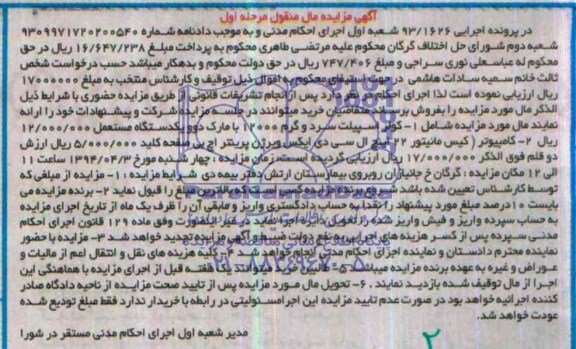 آگهی مزایده مال منقول مرحله اول
در پرونده اجرایی ۹۳/۱۶۲۶ شعبه اول اجرای احکام مدنی و به موجب دادنامه شماره ۹۳۰۹۹۷۱۷۲۰۲۰۰۵۴۰
شعبه دوم شورای حل اختلاف گرگان محکوم علیه مرتضی طاهری محکوم به پرداخت مبلغ ۱۶/۶۴۷/۲۳۸ ریال در حق
محکوم له عباسعلی نوری سراجی و مبلغ ۷۴۷/۴۰۶ ریال در حق دولت محکوم و بدهکار میباشد حسب درخواست شخص
ثالث خانم سمیه سادات هاشمی در جهت استیفای محکوم به اموال ذیل توقیف و کارشناس منتخب به مبلغ ۱۷۰۰۰۰۰۰
ریال ارزیابی نموده است لذا اجرای احکام در نظر دارد پس از انجام تشریفات قانونی از طریق مزایده حضوری با شرایط ذیل
الذکر مال مورد مزایده را بفروش برساند متقاضیان خرید میتوانند در جلسه مزایده شرکت و پیشنهادات خود را ارائه
نمایند مال مورد مزایده شامل ۱- کولر اسپیلت سرد و گرم با مارک دوو یکدستگاه مستعمل ۱۲/۰۰۰/۰۰۰
ریال ۲- کامپیوتر ( کیس مانیتور ۲۲ اینچ ال سی دی ایکس ویژن پرینتر اچ پی صفحه کلید ۵/۰۰۰/۰۰۰ ریال ارزش
دو قلم فوق الذکر ۱۷/۰۰۰/۰۰۰ ریال ارزیابی گردیده است. زمان مزایده : چهار شنبه مورخ ۱۳۹۴/۰۴/۳ ساعت ۱۱
الی ۱۲ مکان مزایده : گرگان خ جانبازان روبروی بیمارستان ارتش دفتر بیمه دی شرایط مزایده : ۱- مزایده از مبلغی که
توسط کارشناس تعیین شده باشد شروع برنده مزایده کسی است که بالاترین مبلغ را قبول نماید ۲- برنده مزایده می
بایست ۱۰درصد مبلغ مورد پیشنهاد را نقدا به حساب دادگستری واریز و مابقی آن را ظرف یک ماه از تاریخ اجرای مزایده
به حساب سپرده واریز و فیش واریز شده را تحویل دایره اجرا نماید در غیر اینصورت وفق ماده ۱۲۹ قانون اجرای احکام
مدنی سپرده پس از کسر هزینه های اجرایی به نفع دولت ضبط و آگهی مزایده تجدید خواهد شد ۳- مزایده با حضور
نماینده محترم دادستان و نماینده اجرای احکام مدنی انجام خواهد شد ۴- کلیه هزینه های نقل و انتقال اعم از مالیات و
عوارض و غیره به عهده برنده مزایده میباشد ۵- طالبین می توانند یکا هفته قبل از اجرای مزایده با هماهنگی این
اجرا از مال توقیف شده بازدید نمایند . ۶- تحویل مال مورد مزایده پس از تایید صحت مزایده از ناحیه دادگاه صادر
کننده اجرائیه خواهد بود در صورت عدم تایید مزایده این اجرا مسئولیتی در رابطه با خریدار ندارد فقط مبلغ تودیع شده
عودت خواهد شد.
مدیر شعبه اول اجرای احکام مدنی مستقر در شورا
۲